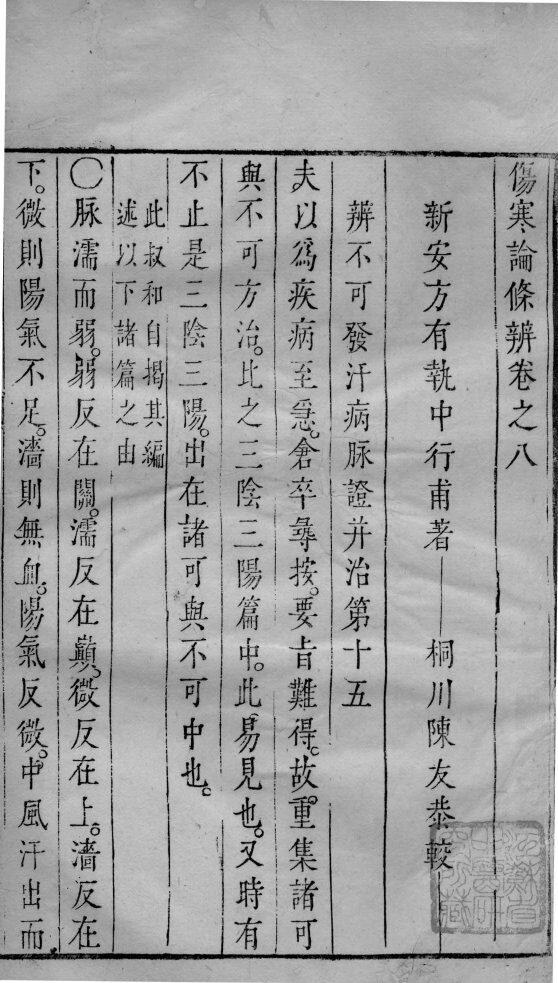 傷寒論條辨卷之八
新安方有執中行甫著 桐川陳友恭較
辨不可發汗病脉證并治第十五
夫以爲疾病至急。倉卒尋按。要旨難得。故重集諸可
與不可方治。比之三陰三陽篇中。此易見也。又時有
不止是三陰三陽。出在諸可與不可中也。
此叔和自揭其編
述以下諸篇之由
〇脉濡而弱。弱反在關。濡反在巔。微反在上。濇反在
下。微則陽氣不足。濇則無血。陽氣反微。中風汗出而